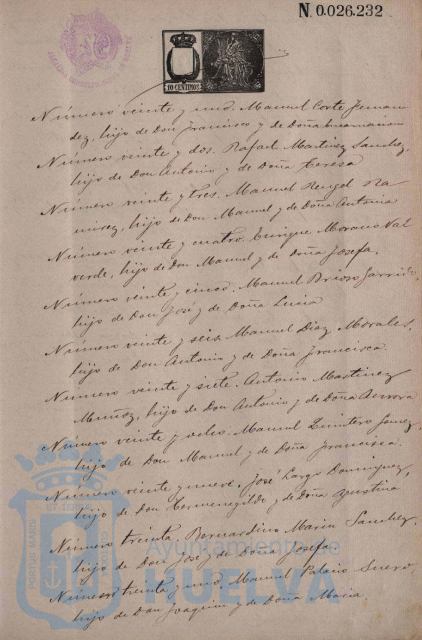 N. 0.026.232
10 CENTIMOS
Número veinte y uno. Manuel Corte Fernan
dez, hijo de Don Francisco y de Doña Encarnacion
Número veinte y dos. Rafael Martinez Sanchez,
hijo de Don Antonio y de Doña Teresa
Número veinte y tres. Manuel Rengel Ra
mirez, hijo de Don Manuel y de Doña Antonia
Número veinte y cuatro. Enrique Moreno Val
verde, hijo de Don Manuel y de Doña Josefa.
Número veinte y cinco. Manuel Garrido,
hijo de Don José y de Doña Lucia
Número veinte y seis. Manuel Diaz Morales,
hijo de Don Antonio y de Doña Francisca.
Número veinte y siete. Antonio Martinez
Muñoz, hijo de Don Antonio y de Doña Aurora
Número veinte y ocho. Manuel Quintero
hijo de Don Manuel y de Doña Francisca.
Número veinte y nueve. José Largo Dominguez,
hijo de Don Hermenegildo y de Doña Agustina
Número treinta. Bernardino Marin Sanchez,
hijo de Don José y de Doña Josefa.
Número treinta y uno. Manuel Palacio Suero,
hijo de Don Joaquin y de Doña Maria.
PORTUS MARIS
Ayuntamiento de
HUELVA